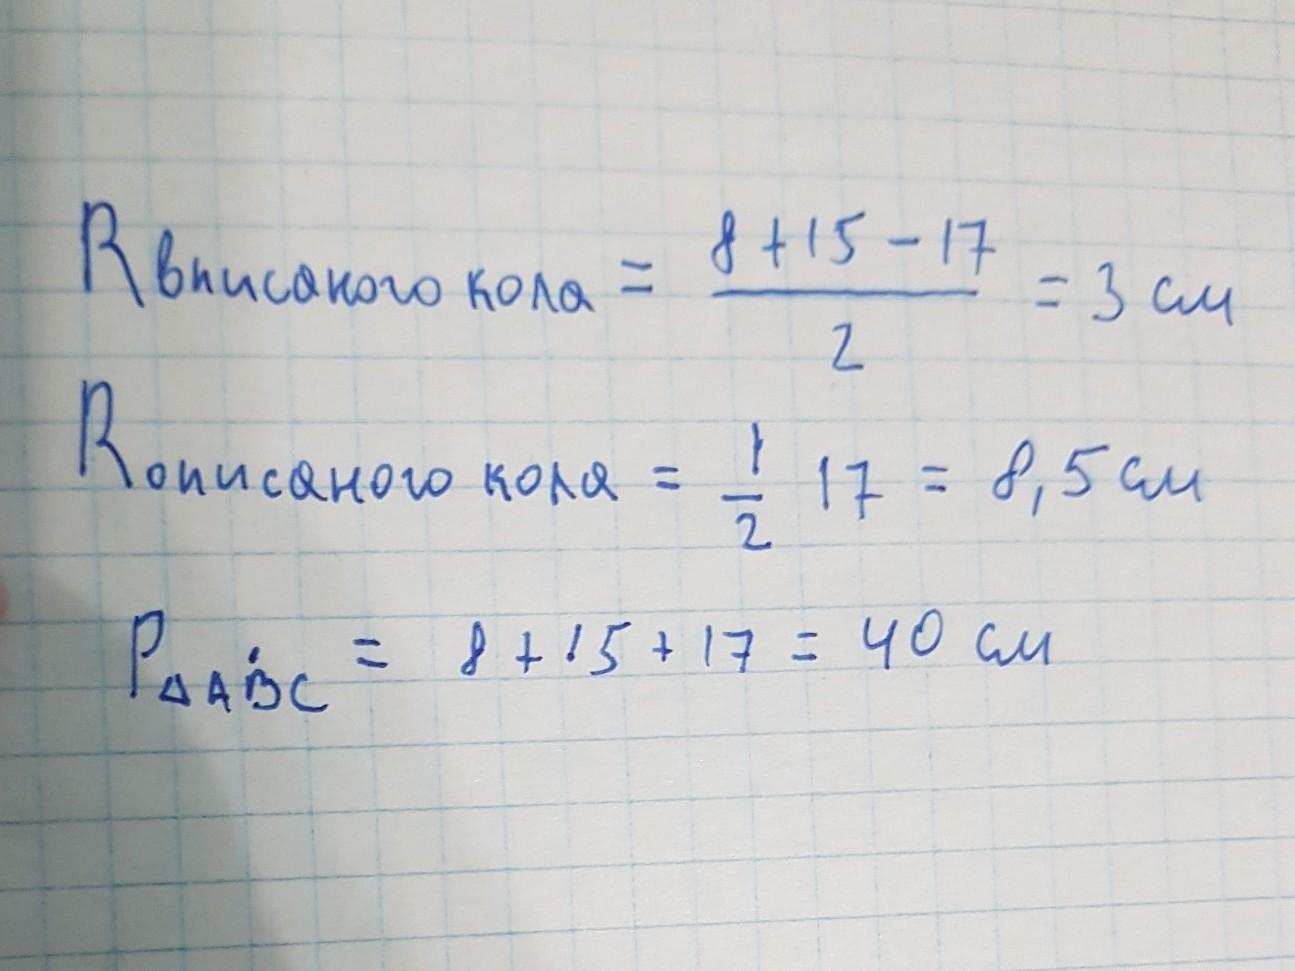 R вписаного кола = (8 + 15 - 17) / 2 = 3 см
R описаного кола = 1/2 17 = 8,5 см
P ΔABC = 8 + 15 + 17 = 40 см